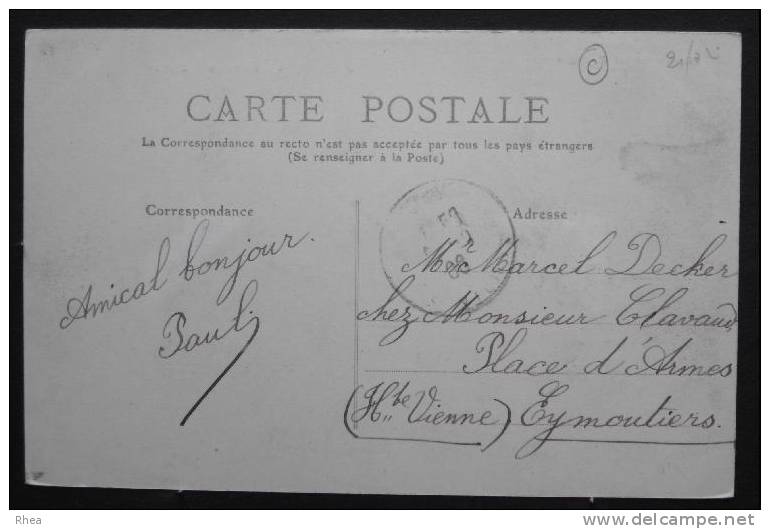 CARTE POSTALE
La Correspondance au recto n'est pas acceptée par tous les pays étrangers
(Se renseigner à la Poste)
Correspondance
Adresse
Amical bonjour.
Paul.
Mr Marcel Decker
chez Monsieur Clavaud
Place d'Armes
(Hte Vienne) Eymoutiers.
C
Rhea
www.delcampe.net